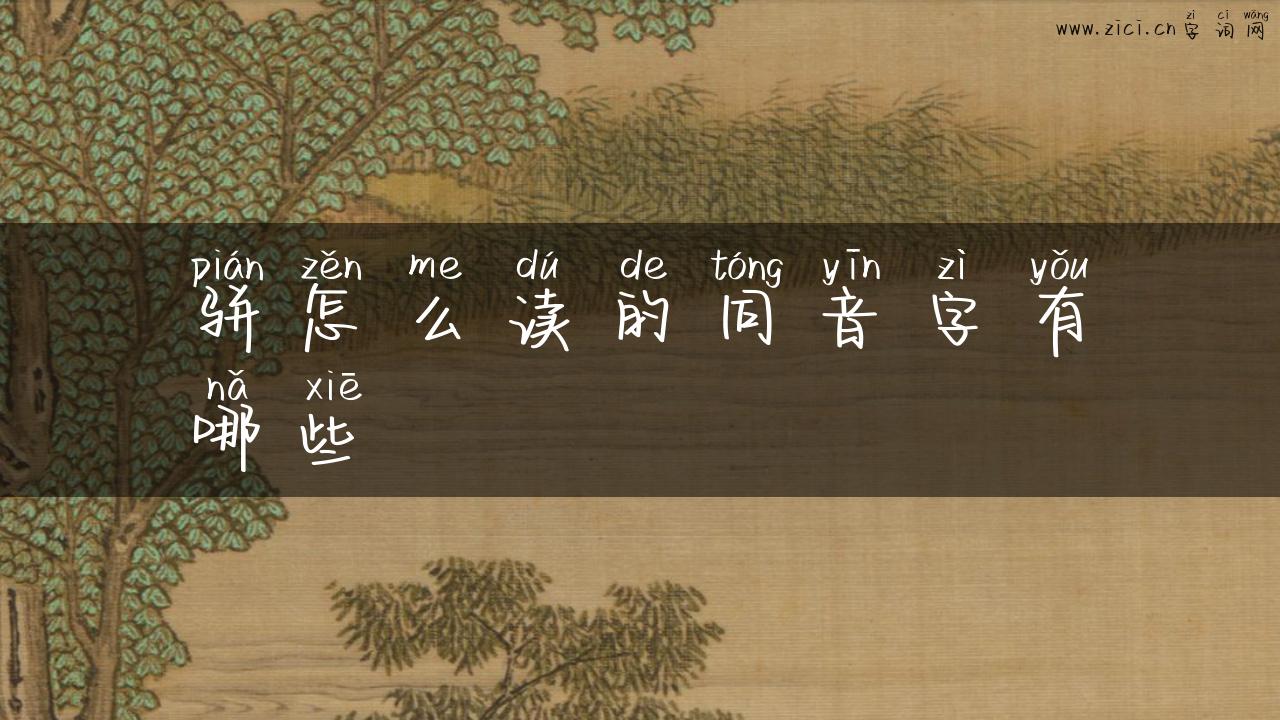 zì cí wǎng
www.zici.cn字词网
pián zěn me dú de tóng yīn zì yǒu
骈怎么读的同音字有
nǎ xiē
哪些